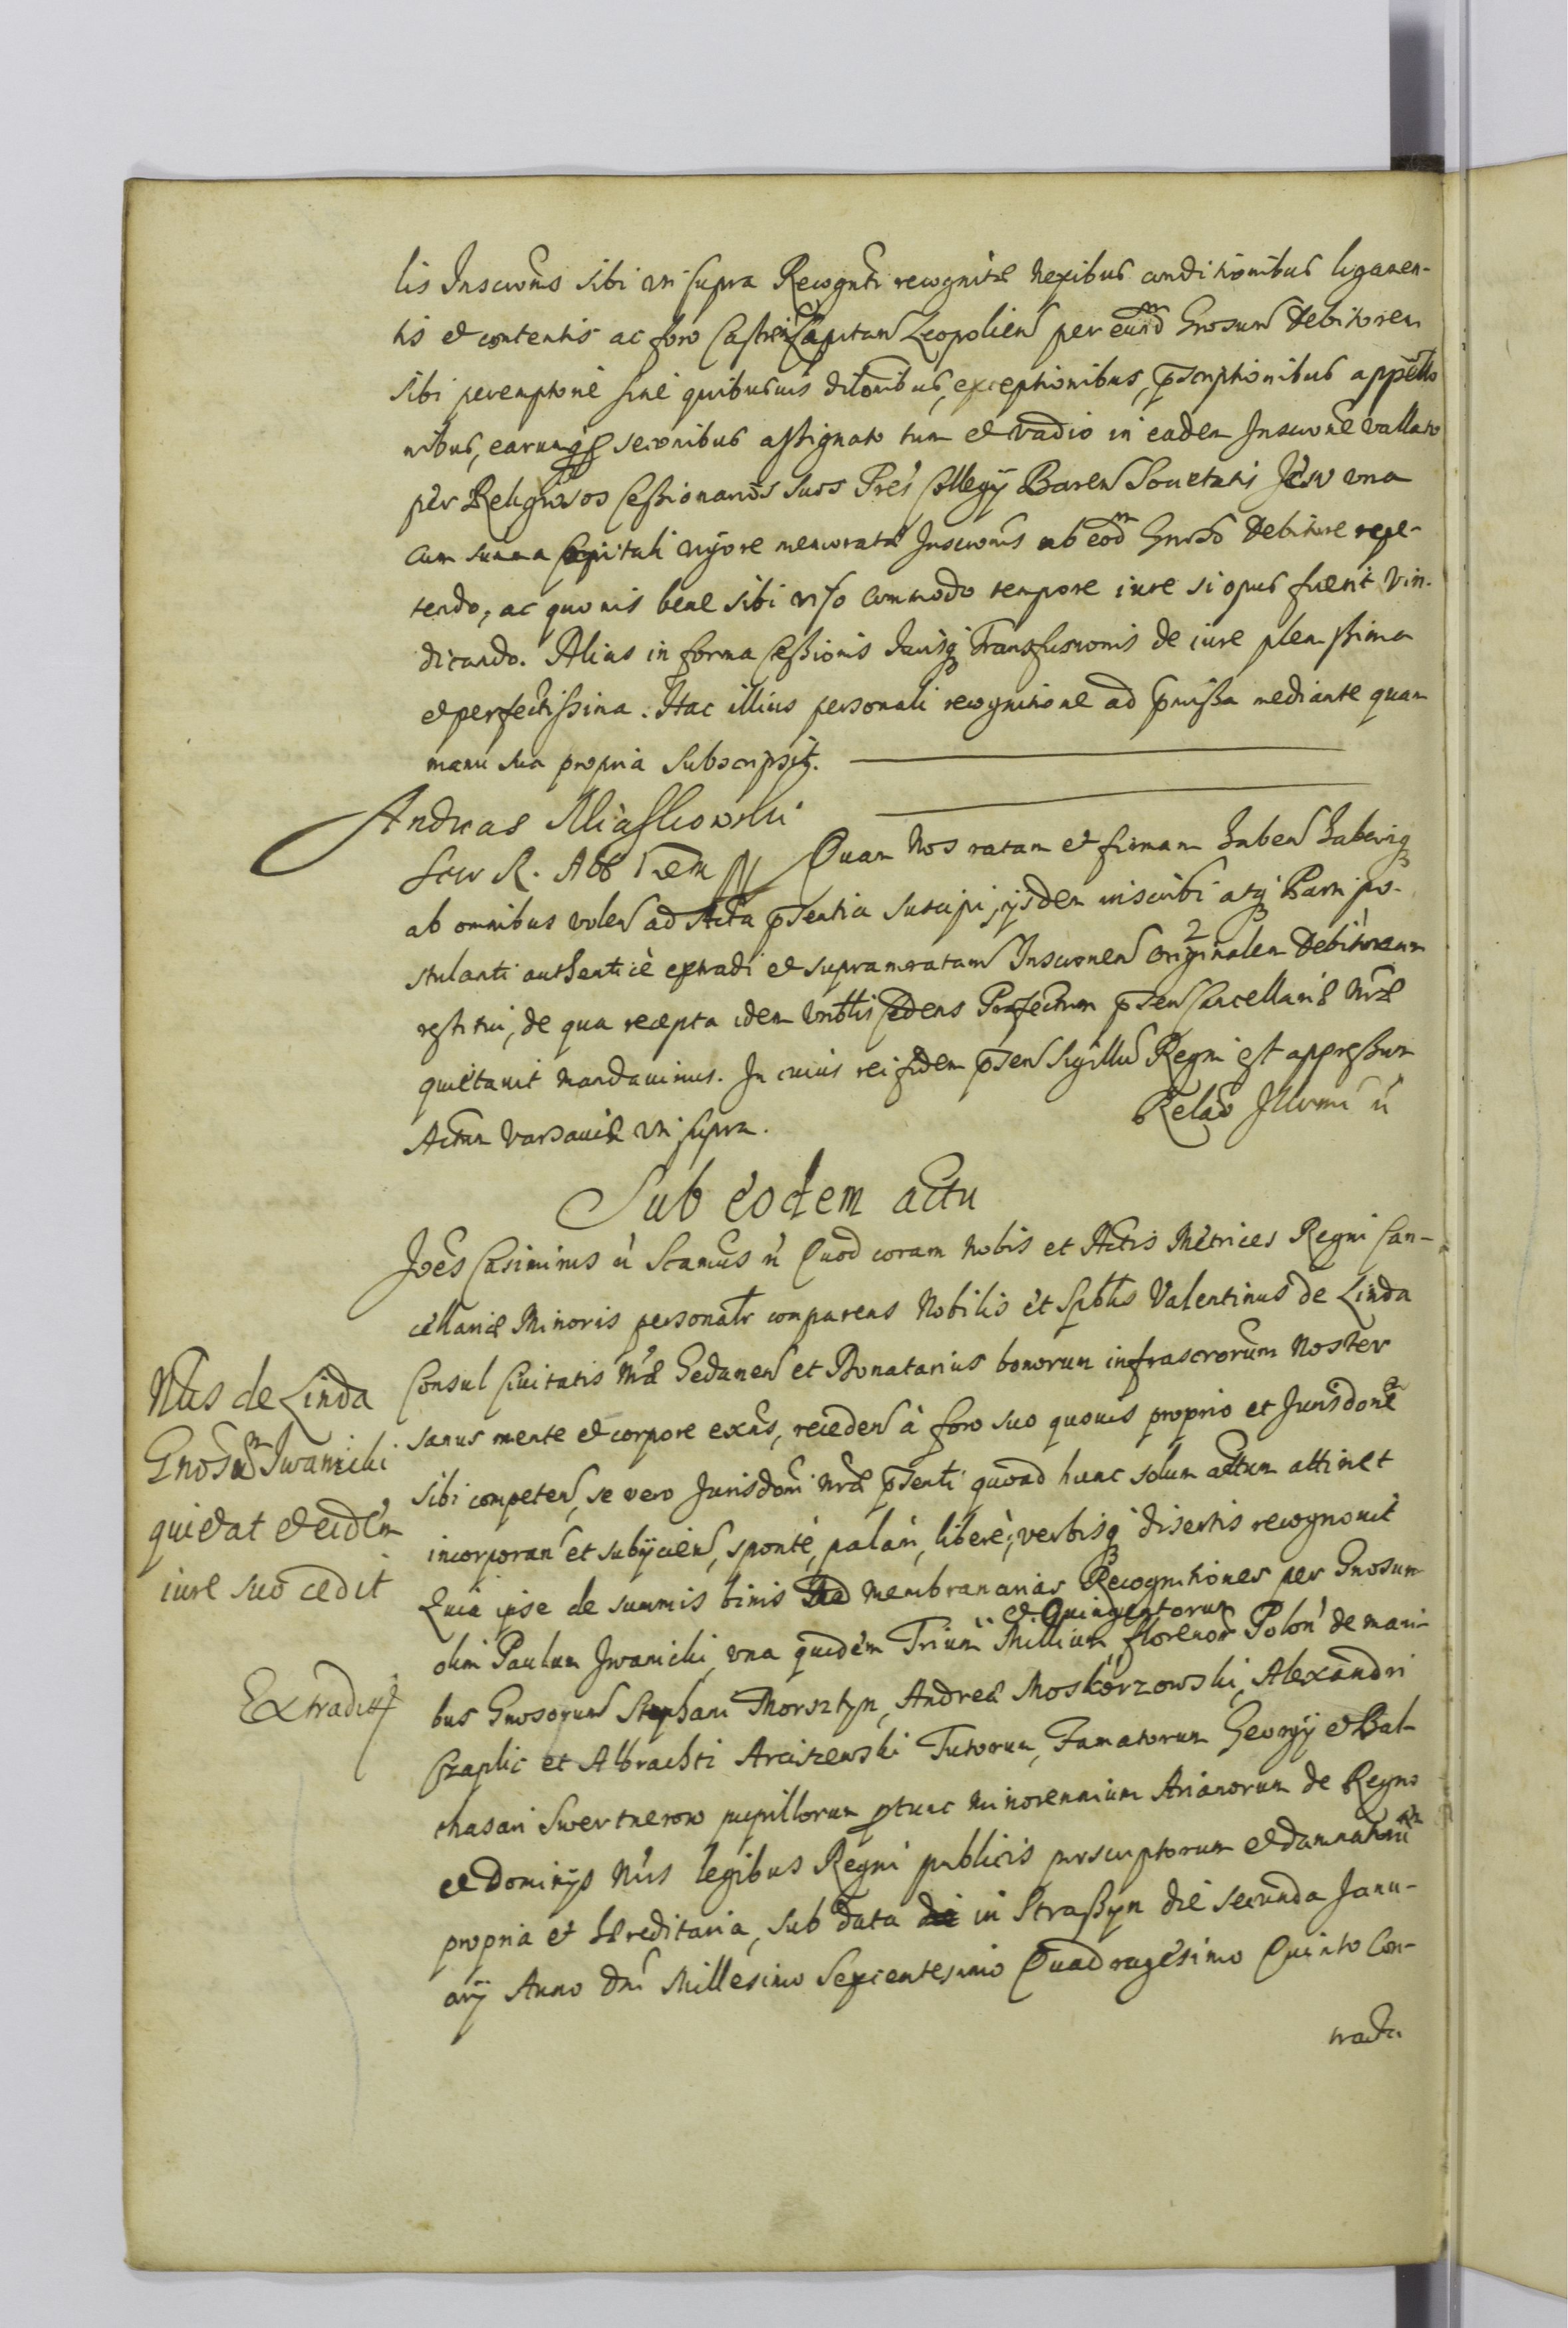 lis Inscronis sibi uti supra Recognti recognitæ nexibus conditionibus ligamen-
tis et contentis ac foro Castren Capitan Leopolien per eundm Gnosum Debitorem
sibi peremptorie sine quibusvis dilonibus, exceptionibus, pscriptionibus appello
nibus, earumq seconibus assignato tum et vadio in eadem Inscrone vallato
per Religiosos Cessionarios suos Pres Collegij Baren Societatis Jesu una
cum summa capitali vigore memoratæ Inscronis ab eodm Gnoso Debitore repe-
tendo, ac quovis bene sibi viso commodo tempore iure si opus fuerit vin-
dicando. Alias in forma Cessionis Jurisq Transfusionis de iure plenissima
et perfectissima. Hac illius personali recognitione ad pmissa mediante quam
manu sua propria subscripsit.
Andreas Miaskowski
Quam Nos ratam et firmam haben haberiq
ab omnibus volen ad Acta psentia suscipi, ijsdem inscribi atq Parti po-
stulanti authentice extradi et suprameratam Inscronem originalem 2 Debitorem
restitui, de qua recepta idem Vrbtlis Cedens Prefectum psen Cancellariæ Nræ
quietavit mandavimus. In cuius rei fidem psen Sigillu Regni est appressum
Actum Varsaviæ uti supra.
Relao Illvmi ú
Sub eodem actu
Joes Casimirus ú Scamus ú Quod coram Nobis et Actis Metrices Regni Can-
cellariæ Minoris personalr comparens Nobilis et Spbtlis Valentinus de Linda
Consul Civitatis Nræ Gedanen et Bonatarius bonorum infrascrorum Noster
sanus mente et corpore exns, receden à foro suo quovis proprio et Jurisdone
sibi competen, se vero Jurisdoni Nræ psenti quoad hunc solum actum attinet
incorporan et subijcien, sponte, palàm, liberè, verbisq disertis recognovit
Quia ipse de summis binis Ad membranarias Recognitiones per Gnosum
et Quingentorum
olim Paulum Jwanicki, una quidem Trium Millium florenor Polon de mani-
bus Gnosorum Stephani Morsztyn, Andreæ Moskorzowski, Alexandri
Czaplic et Albrachti Arciszewski Tutorum, Famatorum Georgij et Bal-
thasari Swertnerow pupillorum ptunc minorennium Arianorum de Regno
et Dominijs Nris legibus Regni publicis proscriptorum et damnatorum
propria et Hæreditaria, sub data in Straszyn die secunda Janu-
arij Anno Dni Millesimo Sexcentesimo Quadragesimo Quinto Con-
tracta
Nblis de Linda
Gnosum Jwanicki
quietat et eidem
iure suo cedit
Extraditj